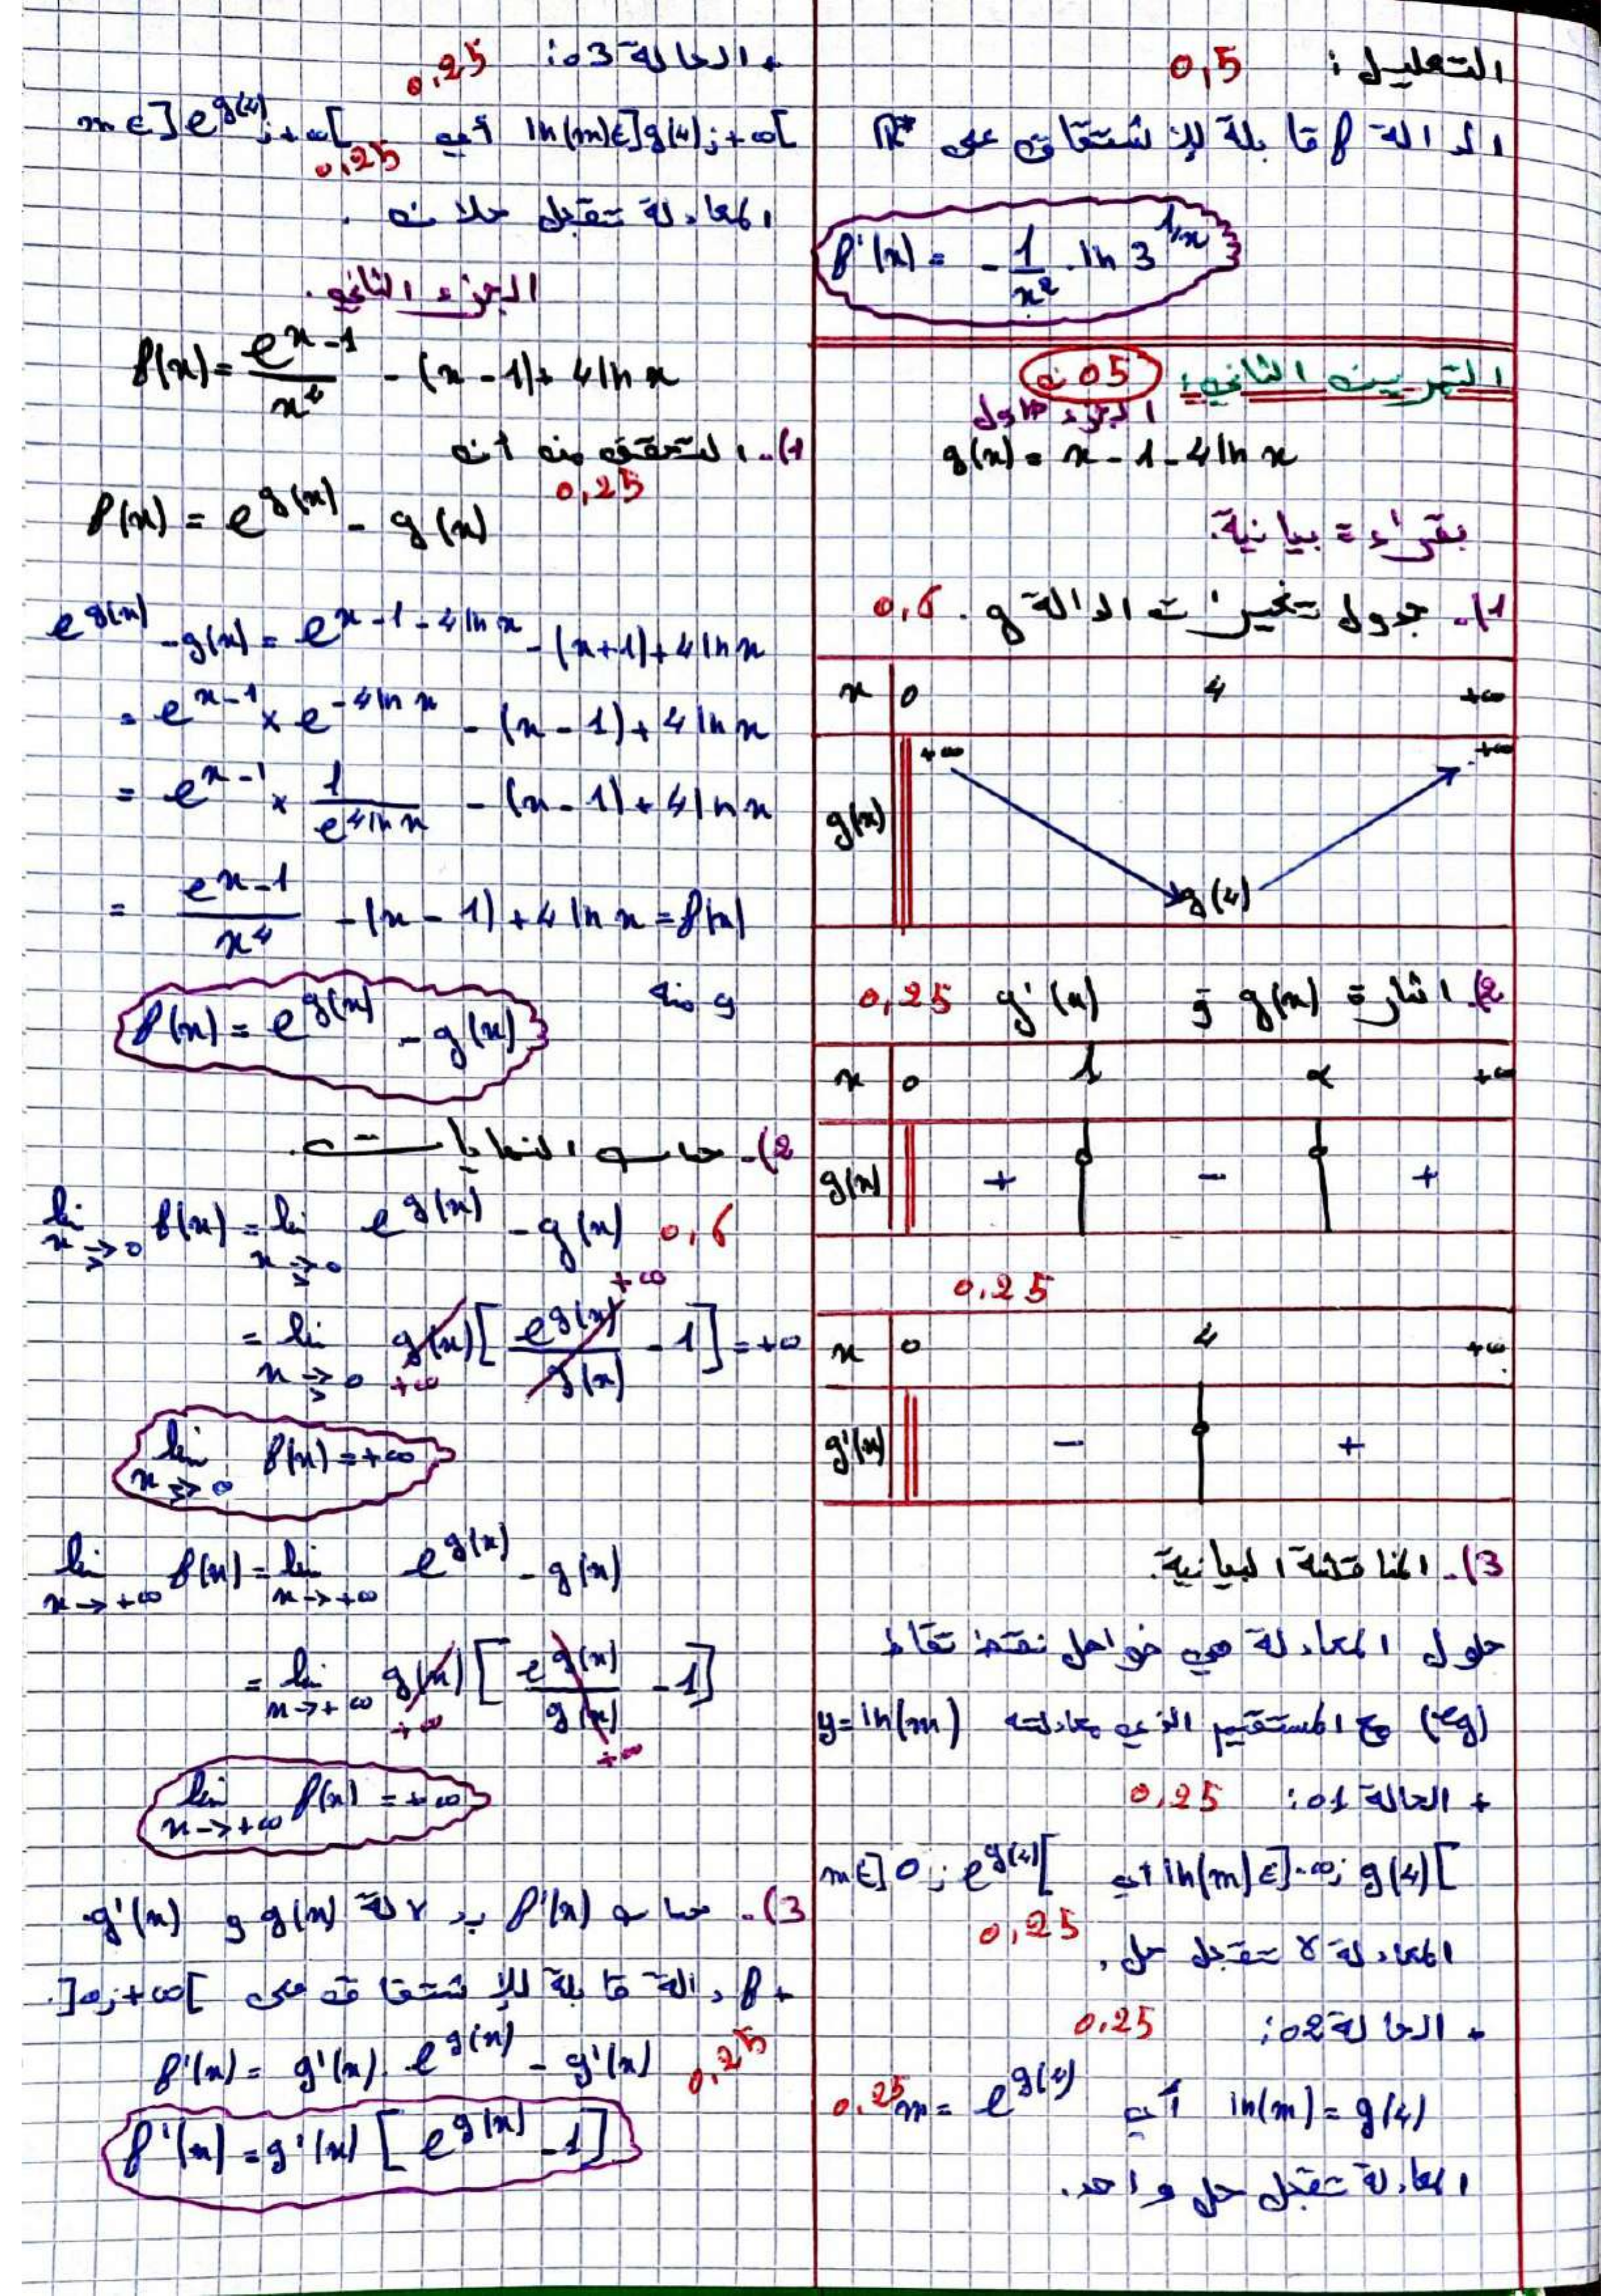 التعليل : 0,5
الدالة f قابلة للإشتقاق على R*
f'(x) = - 1/x² . ln 3^(1/x)
التمرين الثاني: 05 ن
الجزء الأول
g(x) = x - 1 - 4 ln x
بقراءة بيانية:
1). جدول تغيرات الدالة g . 0,6
x 0 4 +∞
g(x) +∞ g(4) +∞
2). اشارة g(x) و g'(x) 0,25
x 0 1 α +∞
g(x) + - +
0,25
x 0 4 +∞
g'(x) - +
3). المناقشة البيانية.
حلول المعادلة هي فواصل نقط تقاط
(Cg) مع المستقيم الذي معادلته y = ln(m)
+ الحالة 01: 0,25
ln(m) ∈ ]-∞; g(4)[ أي m ∈ ]0 ; e^g(4)[
المعادلة لا تقبل حل. 0,25
+ الحالة 02: 0,25
ln(m) = g(4) أي m = e^g(4) 0,25
المعادلة تقبل حل واحد.
+ الحالة 03: 0,25
ln(m) ∈ ]g(4) ; +∞[ أي m ∈ ]e^g(4) ; +∞[
0,25
المعادلة تقبل حلان .
الجزء الثاني.
f(x) = e^(x-1)/x⁴ - (x - 1) + 4 ln x
1). التحقق من أن
0,25
f(x) = e^g(x) - g(x)
e^g(x) - g(x) = e^(x-1-4 ln x) - (x+1) + 4 ln x
= e^(x-1) × e^(-4 ln x) - (x - 1) + 4 ln x
= e^(x-1) × 1/e^(4 ln x) - (x - 1) + 4 ln x
= e^(x-1)/x⁴ - (x - 1) + 4 ln x = f(x)
و منه
f(x) = e^g(x) - g(x)
2). حساب النهايات.
lim x→>0 f(x) = lim x→>0 e^g(x) - g(x) 0,6
= lim x→>0 g(x) [ e^g(x)/g(x) - 1 ] = +∞
+∞ +∞
lim x→>0 f(x) = +∞
lim x→+∞ f(x) = lim x→+∞ e^g(x) - g(x)
= lim x→+∞ g(x) [ e^g(x)/g(x) - 1 ]
+∞ +∞
lim x→+∞ f(x) = +∞
3). حساب f'(x) بدلالة g(x) و g'(x).
+ f دالة قابلة للإشتقاق على ]0;+∞[.
f'(x) = g'(x) . e^g(x) - g'(x) 0,25
f'(x) = g'(x) [ e^g(x) - 1 ]